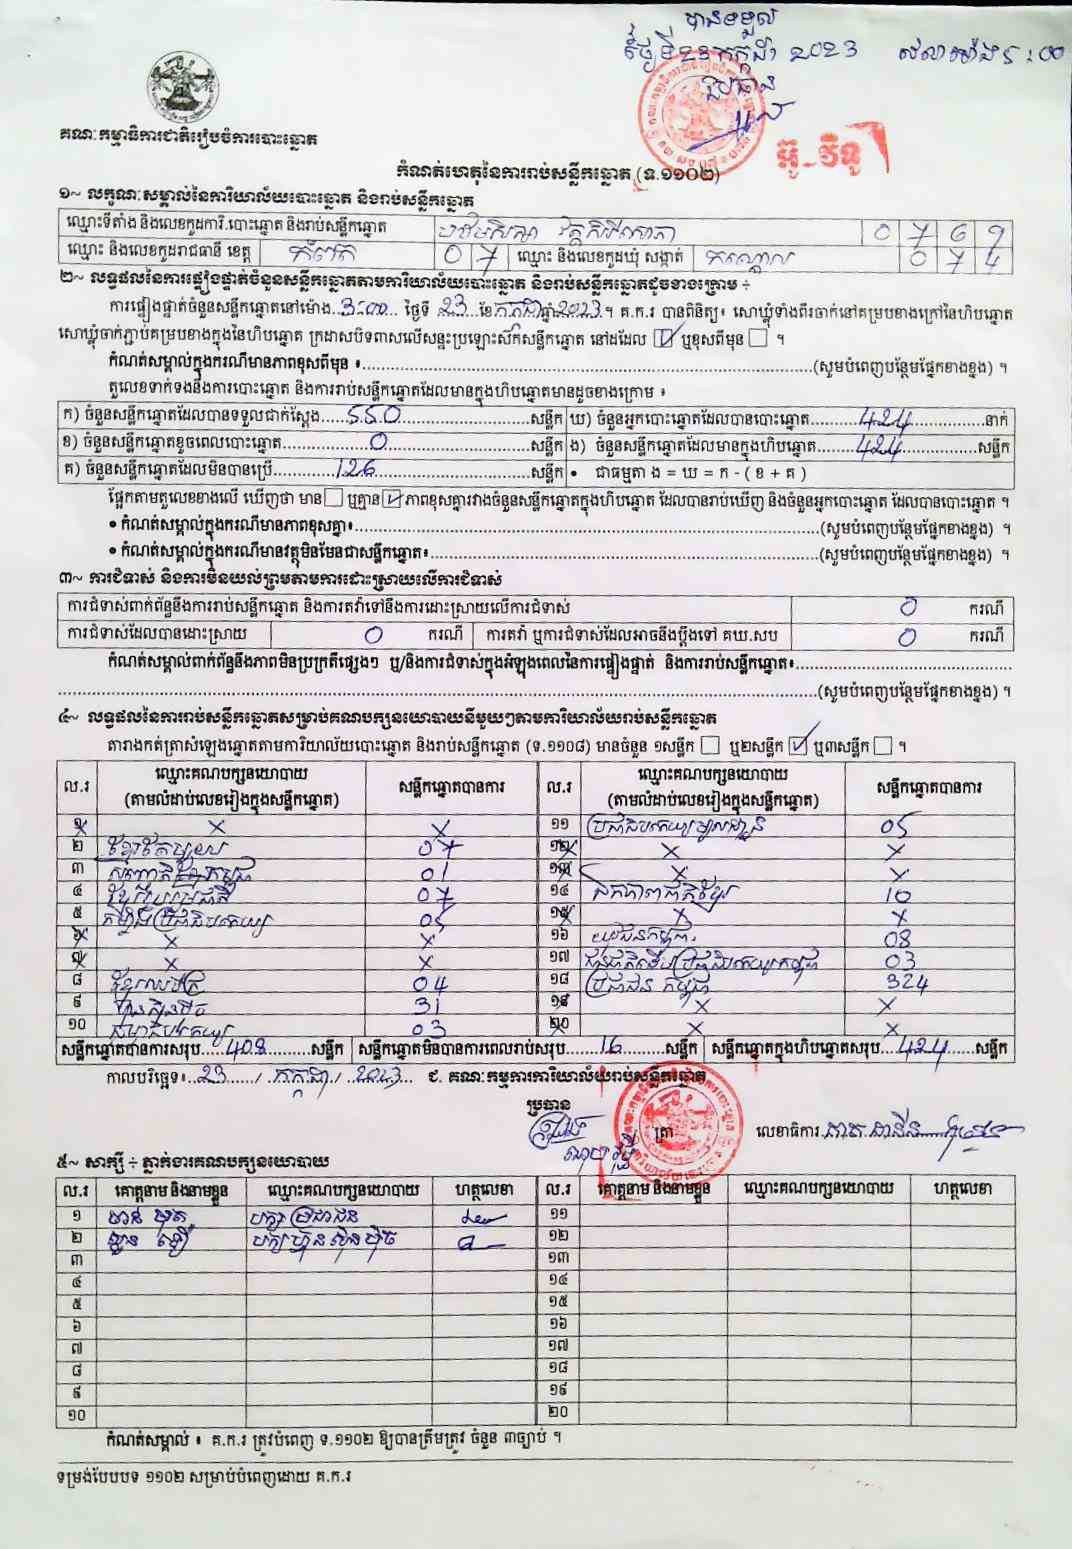 បានទទួល
ថ្ងៃទី២៣ កក្កដា 2023 វេលាម៉ោង 5:00
ប្រធាន
អ៊ូ វិទូ
គណៈកម្មាធិការជាតិរៀបចំការបោះឆ្នោត
កំណត់ហេតុនៃការរាប់សន្លឹកឆ្នោត (ទ.១១០២)
១~ លក្ខណៈសម្គាល់នៃការិយាល័យបោះឆ្នោត និងរាប់សន្លឹកឆ្នោត
ឈ្មោះទីតាំង និងលេខកូដការិ.បោះឆ្នោត និងរាប់សន្លឹកឆ្នោត 0 7 6 9
ឈ្មោះ និងលេខកូដរាជធានី ខេត្ត កំពត 0 7 ឈ្មោះ និងលេខកូដឃុំ សង្កាត់ កណ្ដាល 0 7 4
២~ លទ្ធផលនៃការផ្ទៀងផ្ទាត់ចំនួនសន្លឹកឆ្នោតតាមការិយាល័យបោះឆ្នោត និងរាប់សន្លឹកឆ្នោតដូចខាងក្រោម ÷
ការផ្ទៀងផ្ទាត់ចំនួនសន្លឹកឆ្នោតនៅម៉ោង 3:00 ថ្ងៃទី 23 ខែ កក្កដា ឆ្នាំ 2023 ។ គ.ក.រ បានពិនិត្យ៖ សោឃ្លុំទាំងពីរចាក់នៅគម្របខាងក្រៅនៃហិបឆ្នោត
សោឃ្លុំចាក់ភ្ជាប់គម្របខាងក្នុងនៃហិបឆ្នោត ក្រដាសបិទពាសលើសន្ទះប្រឡោះស៊កសន្លឹកឆ្នោត នៅដដែល ☑ ឬខុសពីមុន ☐ ។
កំណត់សម្គាល់ក្នុងករណីមានភាពខុសពីមុន ៖ (សូមបំពេញបន្ថែមផ្នែកខាងខ្នង) ។
តួលេខទាក់ទងនឹងការបោះឆ្នោត និងការរាប់សន្លឹកឆ្នោតដែលមានក្នុងហិបឆ្នោតមានដូចខាងក្រោម ៖
ក) ចំនួនសន្លឹកឆ្នោតដែលបានទទួលជាក់ស្តែង 550 សន្លឹក ឃ) ចំនួនអ្នកបោះឆ្នោតដែលបានបោះឆ្នោត 424 នាក់
ខ) ចំនួនសន្លឹកឆ្នោតខូចពេលបោះឆ្នោត 0 សន្លឹក ង) ចំនួនសន្លឹកឆ្នោតដែលមានក្នុងហិបឆ្នោត 424 សន្លឹក
គ) ចំនួនសន្លឹកឆ្នោតដែលមិនបានប្រើ 126 សន្លឹក • ជាធម្មតា ង = ឃ = ក - ( ខ + គ )
ផ្អែកតាមតួលេខខាងលើ ឃើញថា មាន ☐ ឬគ្មាន ☑ ភាពខុសគ្នារវាងចំនួនសន្លឹកឆ្នោតក្នុងហិបឆ្នោត ដែលបានរាប់ឃើញ និងចំនួនអ្នកបោះឆ្នោត ដែលបានបោះឆ្នោត ។
• កំណត់សម្គាល់ក្នុងករណីមានភាពខុសគ្នា៖ (សូមបំពេញបន្ថែមផ្នែកខាងខ្នង) ។
• កំណត់សម្គាល់ក្នុងករណីមានវត្ថុមិនមែនជាសន្លឹកឆ្នោត៖ (សូមបំពេញបន្ថែមផ្នែកខាងខ្នង) ។
៣~ ការជំទាស់ និងការមិនយល់ព្រមតាមការដោះស្រាយលើការជំទាស់
ការជំទាស់ពាក់ព័ន្ធនឹងការរាប់សន្លឹកឆ្នោត និងការតវ៉ាទៅនឹងការដោះស្រាយលើការជំទាស់ 0 ករណី
ការជំទាស់ដែលបានដោះស្រាយ 0 ករណី ការតវ៉ា ឬការជំទាស់ដែលអាចនឹងប្តឹងទៅ គឃ.សប 0 ករណី
កំណត់សម្គាល់ពាក់ព័ន្ធនឹងភាពមិនប្រក្រតីផ្សេងៗ ឬ/និងការជំទាស់ក្នុងអំឡុងពេលនៃការផ្ទៀងផ្ទាត់ និងការរាប់សន្លឹកឆ្នោត៖
(សូមបំពេញបន្ថែមផ្នែកខាងខ្នង) ។
៤~ លទ្ធផលនៃការរាប់សន្លឹកឆ្នោតសម្រាប់គណបក្សនយោបាយនីមួយៗតាមការិយាល័យរាប់សន្លឹកឆ្នោត
តារាងកត់ត្រាសំឡេងឆ្នោតតាមការិយាល័យបោះឆ្នោត និងរាប់សន្លឹកឆ្នោត (ទ.១១០៨) មានចំនួន ១សន្លឹក ☐ ឬ២សន្លឹក ☑ ឬ៣សន្លឹក ☐ ។
ល.រ ឈ្មោះគណបក្សនយោបាយ (តាមលំដាប់លេខរៀងក្នុងសន្លឹកឆ្នោត) សន្លឹកឆ្នោតបានការ ល.រ ឈ្មោះគណបក្សនយោបាយ (តាមលំដាប់លេខរៀងក្នុងសន្លឹកឆ្នោត) សន្លឹកឆ្នោតបានការ
១ × × ១១ ប្រជាធិបតេយ្យមូលដ្ឋាន 05
២ ខ្មែរតែមួយ 07 ១២ × ×
៣ សញ្ជាតិខ្មែរកម្ពុជា 01 ១៣ × ×
៤ 07 ១៤ ឯកភាពជាតិខ្មែរ 10
៥ កម្លាំងប្រជាធិបតេយ្យ 05 ១៥ × ×
៦ × × ១៦ យុវជនកម្ពុជា 08
៧ × × ១៧ 03
៨ 04 ១៨ ប្រជាជន កម្ពុជា 324
៩ ហ៊្វុនស៊ិនប៉ិច 31 ១៩ × ×
១០ 03 ២០ × ×
សន្លឹកឆ្នោតបានការសរុប 408 សន្លឹក សន្លឹកឆ្នោតមិនបានការពេលរាប់សរុប 16 សន្លឹក សន្លឹកឆ្នោតក្នុងហិបឆ្នោតសរុប 424 សន្លឹក
កាលបរិច្ឆេទ៖ 23 / កក្កដា / 2023 ជ. គណៈកម្មការការិយាល័យរាប់សន្លឹកឆ្នោត
ប្រធាន
ត្រា លេខាធិការ
៥~ សាក្សី ÷ ភ្នាក់ងារគណបក្សនយោបាយ
ល.រ គោត្តនាម និងនាមខ្លួន ឈ្មោះគណបក្សនយោបាយ ហត្ថលេខា ល.រ គោត្តនាម និងនាមខ្លួន ឈ្មោះគណបក្សនយោបាយ ហត្ថលេខា
១ បក្សប្រជាជន ១១
២ បក្សហ៊្វុនស៊ិនប៉ិច ១២
៣ ១៣
៤ ១៤
៥ ១៥
៦ ១៦
៧ ១៧
៨ ១៨
៩ ១៩
១០ ២០
កំណត់សម្គាល់ ៖ គ.ក.រ ត្រូវបំពេញ ទ.១១០២ ឱ្យបានត្រឹមត្រូវ ចំនួន ៣ច្បាប់ ។
ទម្រង់បែបបទ ១១០២ សម្រាប់បំពេញដោយ គ.ក.រ